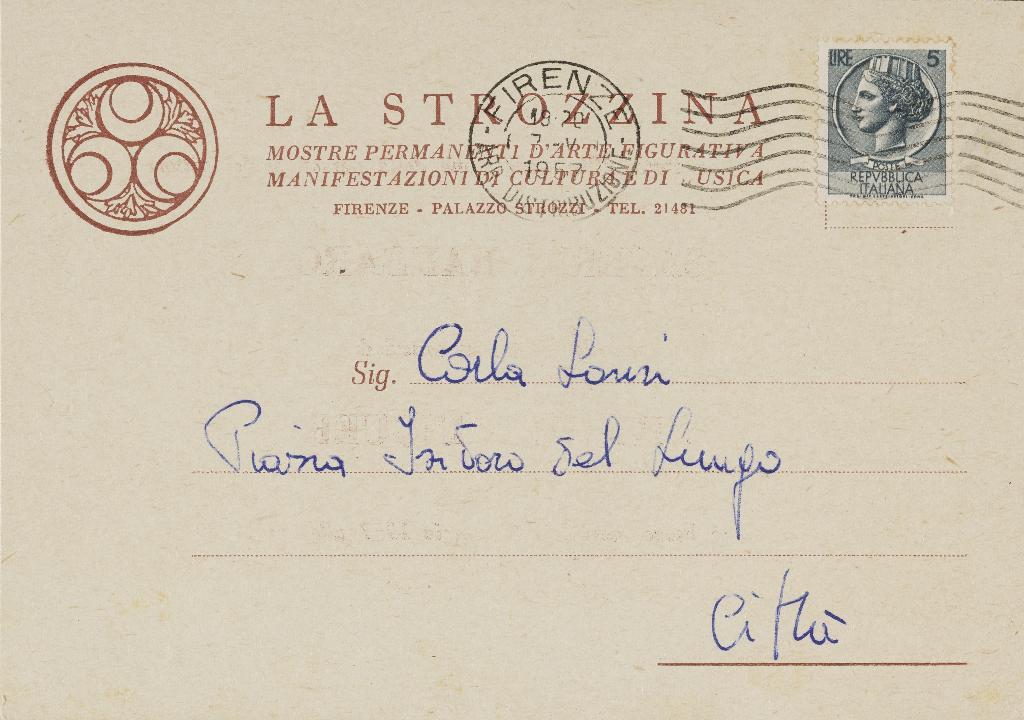 LA STROZZINA
MOSTRE PERMANENTI D'ARTE FIGURATIVA
MANIFESTAZIONI DI CULTURA E DI USICA
FIRENZE - PALAZZO STROZZI - TEL. 21481
FIRENZE
19-20
7 V
1957
LIRE 5
REPVBBLICA
ITALIANA
Sig. Carla Lonzi
Piazza Isidoro del Lungo
Città